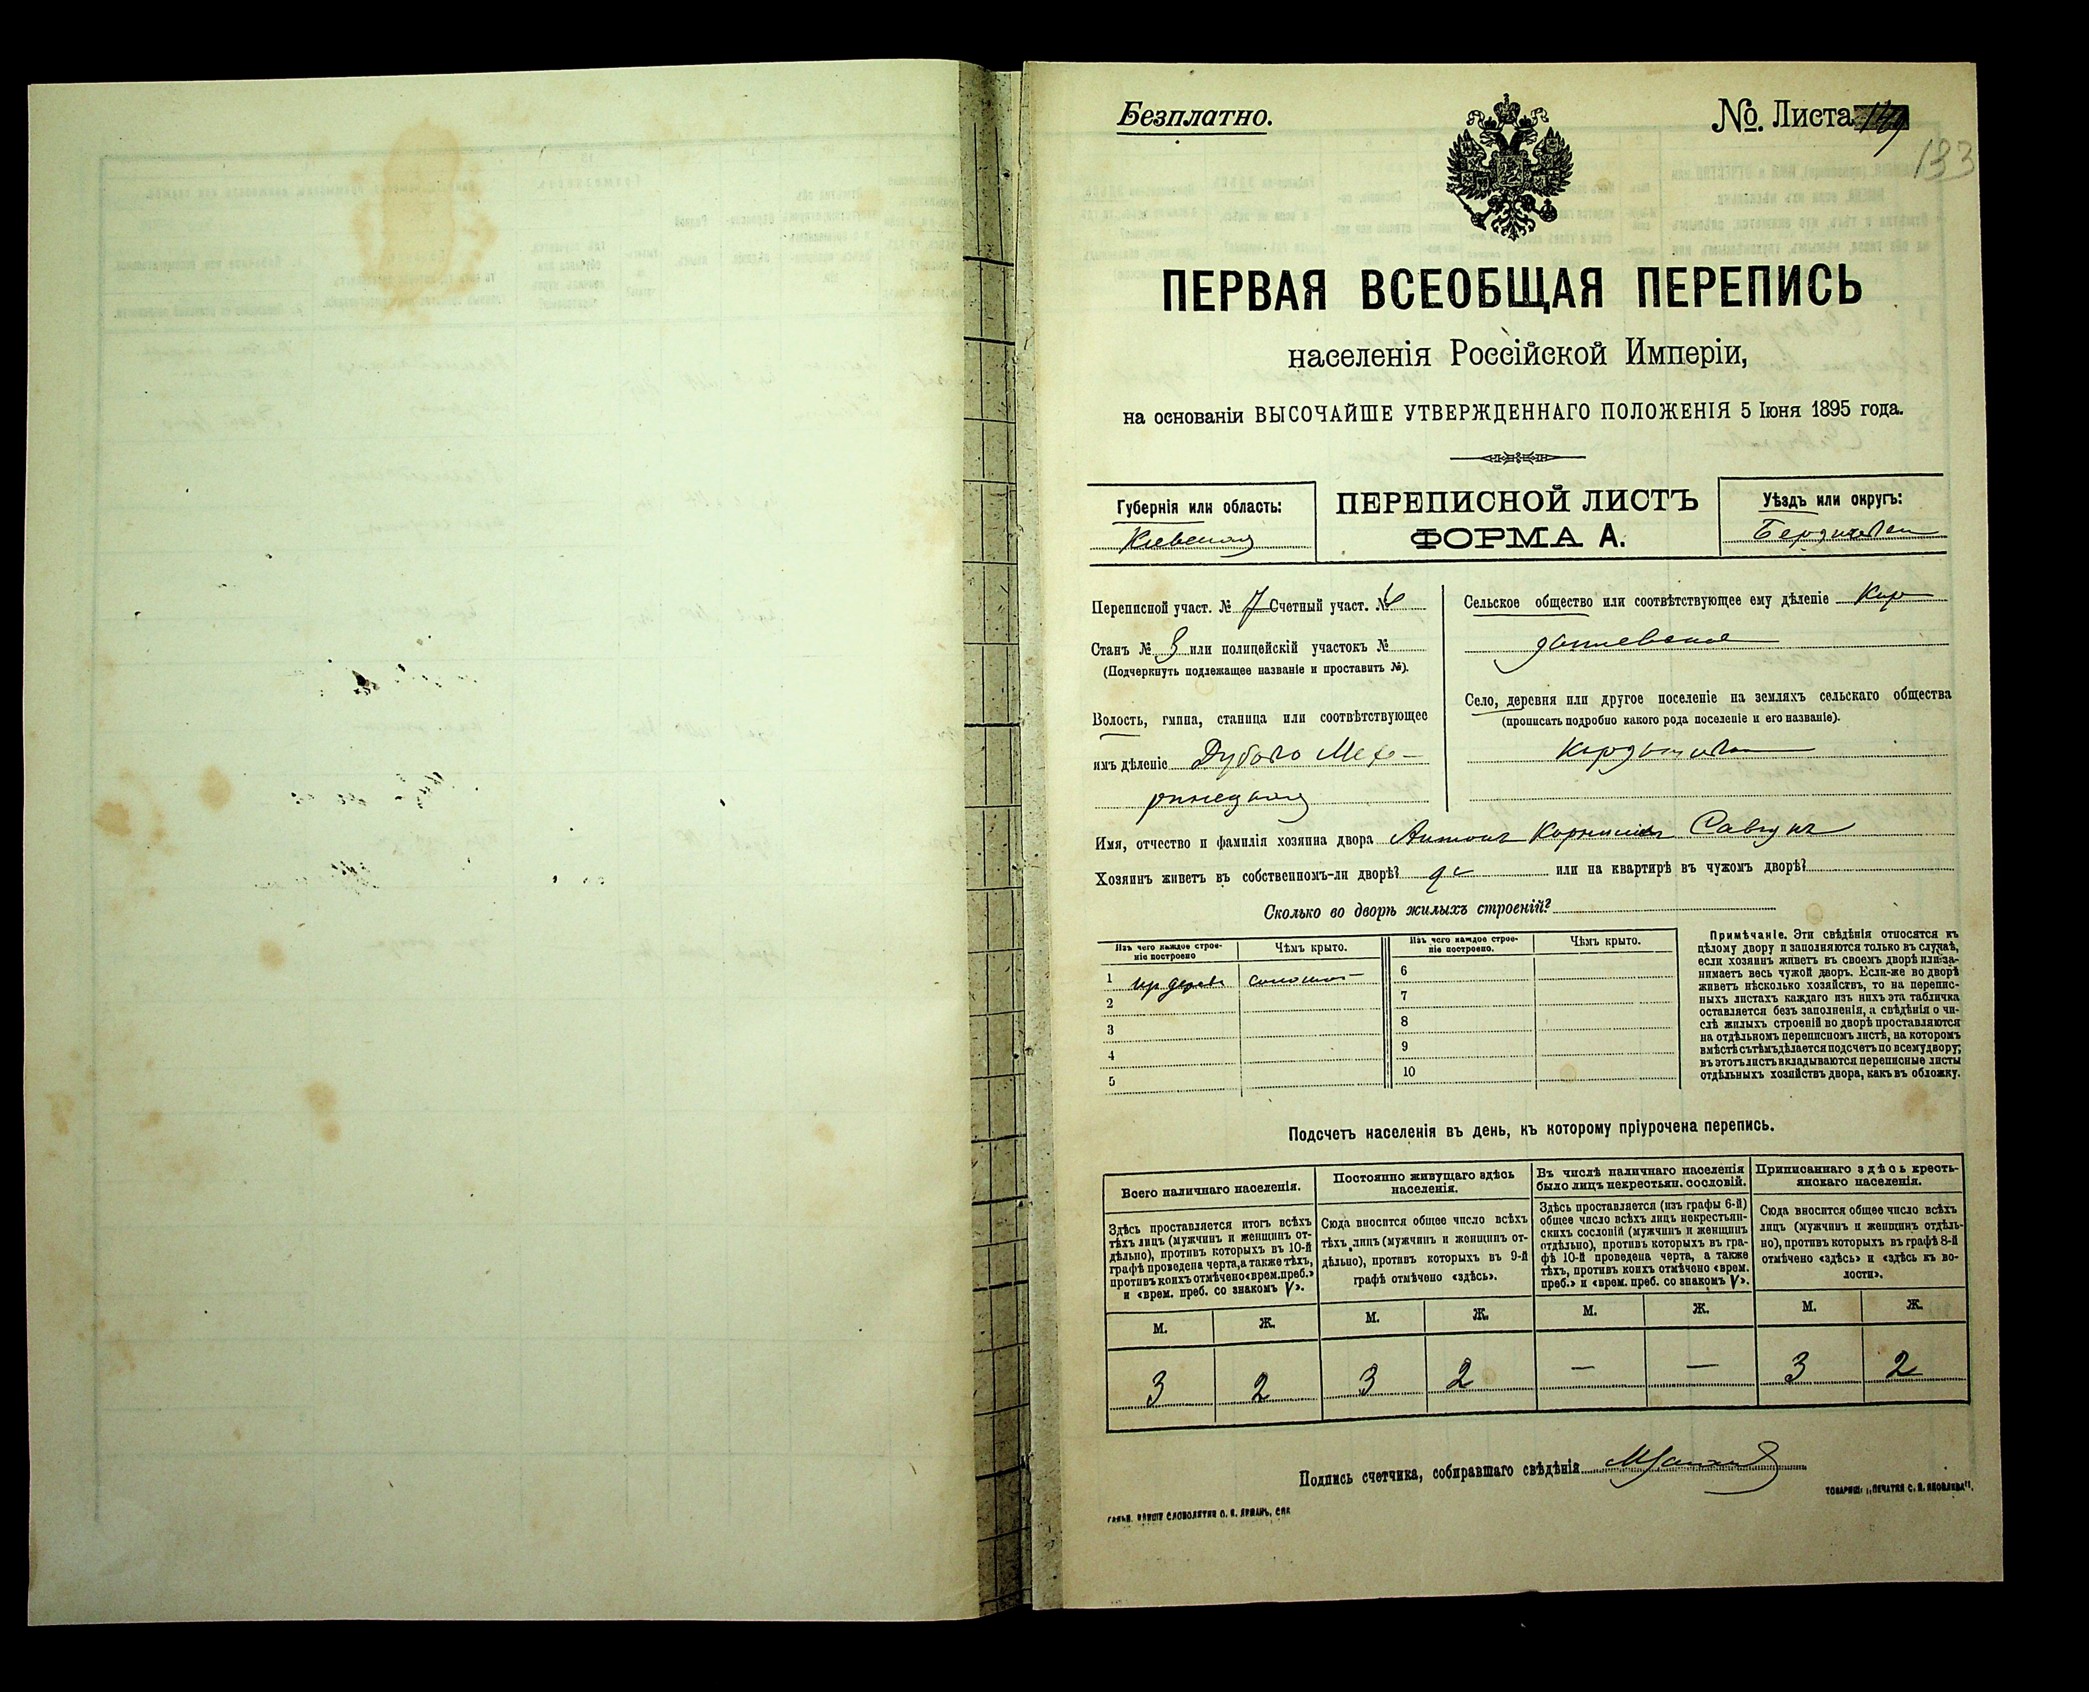 Безплатно.
№. Листа 149
133
ПЕРВАЯ ВСЕОБЩАЯ ПЕРЕПИСЬ
населенія Россійской Имперіи,
на основаніи ВЫСОЧАЙШЕ УТВЕРЖДЕННАГО ПОЛОЖЕНІЯ 5 Іюня 1895 года.
Губернія или область:
Кіевская
ПЕРЕПИСНОЙ ЛИСТЪ
ФОРМА А.
Уѣздъ или округъ:
Бердичевскій
Переписной участ. № 7 Счетный участ. №
Станъ № 3 или полицейскій участокъ №
(Подчеркнуть подлежащее названіе и проставить №).
Волость, гмина, станица или соотвѣтствующее
имъ дѣленіе Дубово Меже-
Сельское общество или соотвѣтствующее ему дѣленіе Кор
дышевское
Село, деревня или другое поселеніе на земляхъ сельскаго общества
(прописать подробно какого рода поселеніе и его названіе).
Имя, отчество и фамилія хозяина двора Антонъ Корніевъ Савчукъ
Хозяинъ живетъ въ собственномъ-ли дворѣ? да или на квартирѣ въ чужомъ дворѣ?
Сколько во дворѣ жилыхъ строеній?
Изъ чего каждое строе-
ніе построено
Чѣмъ крыто.
Изъ чего каждое строе-
ніе построено.
Чѣмъ крыто.
1 изъ дерева соломою
2
3
4
5
6
7
8
9
10
Примѣчаніе. Эти свѣдѣнія относятся къ
цѣлому двору и заполняются только въ случаѣ,
если хозяинъ живетъ въ своемъ дворѣ или за-
нимаетъ весь чужой дворъ. Если-же во дворѣ
живетъ нѣсколько хозяйствъ, то на перепис-
ныхъ листахъ каждаго изъ нихъ эта табличка
оставляется безъ заполненія, а свѣдѣнія о чи-
слѣ жилыхъ строеній во дворѣ проставляются
на отдѣльномъ переписномъ листѣ, на которомъ
вмѣстѣ съ тѣмъ дѣлается подсчетъ по всему двору;
въ этотъ листъ вкладываются переписные листы
отдѣльныхъ хозяйствъ двора, какъ въ обложку.
Подсчетъ населенія въ день, къ которому пріурочена перепись.
Всего наличнаго населенія.
Здѣсь проставляется итогъ всѣхъ
тѣхъ лицъ (мужчинъ и женщинъ от-
дѣльно), противъ которыхъ въ 10-й
графѣ проведена черта, а также тѣхъ,
противъ коихъ отмѣчено «врем. преб.»
и «врем. преб. со знакомъ V».
Постоянно живущаго здѣсь
населенія.
Сюда вносится общее число всѣхъ
тѣхъ лицъ (мужчинъ и женщинъ от-
дѣльно), противъ которыхъ въ 9-й
графѣ отмѣчено «здѣсь».
Въ числѣ наличнаго населенія
было лицъ некрестьян. сословій.
Здѣсь проставляется (изъ графы 6-й)
общее число всѣхъ лицъ некрестьян-
скихъ сословій (мужчинъ и женщинъ
отдѣльно), противъ которыхъ въ гра-
фѣ 10-й проведена черта, а также
тѣхъ, противъ коихъ отмѣчено «врем.
преб.» и «врем. преб. со знакомъ V».
Приписаннаго здѣсь кресть-
янскаго населенія.
Сюда вносится общее число всѣхъ
лицъ (мужчинъ и женщинъ отдѣль-
но), противъ которыхъ въ графѣ 8-й
отмѣчено «здѣсь» и «здѣсь къ во-
лости».
М. Ж. М. Ж. М. Ж. М. Ж.
3 2 3 2 — — 3 2
Подпись счетчика, собиравшаго свѣдѣнія